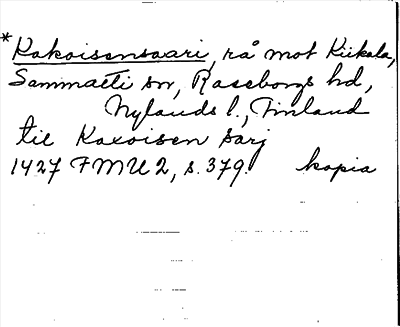 *Kakoisensaari, rå mot Kiikala,
Sammatti sn, Raseborgs hd,
Nylands l., Finland
til Koxoisen sarj
1427 FMU 2, s. 379. kopia